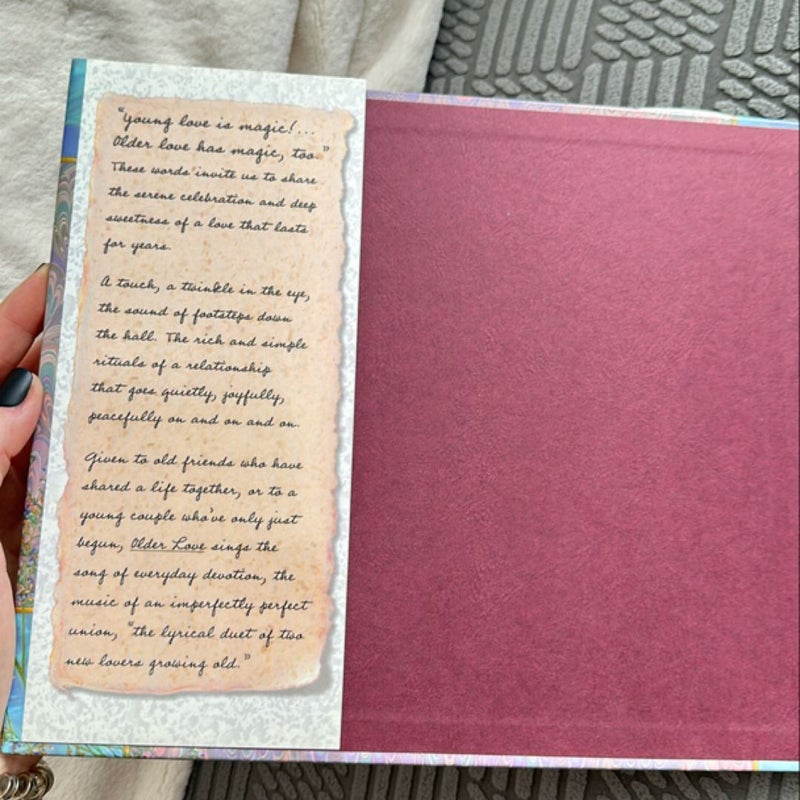 "Young love is magic!...
Older love has magic, too."
These words invite us to share
the serene celebration and deep
sweetness of a love that lasts
for years.
A touch, a twinkle in the eye,
the sound of footsteps down
the hall. The rich and simple
rituals of a relationship
that goes quietly, joyfully,
peacefully on and on and on.
Given to old friends who have
shared a life together, or to a
young couple who've only just
begun, Older Love sings the
song of everyday devotion, the
music of an imperfectly perfect
union, "the lyrical duet of two
new lovers growing old."